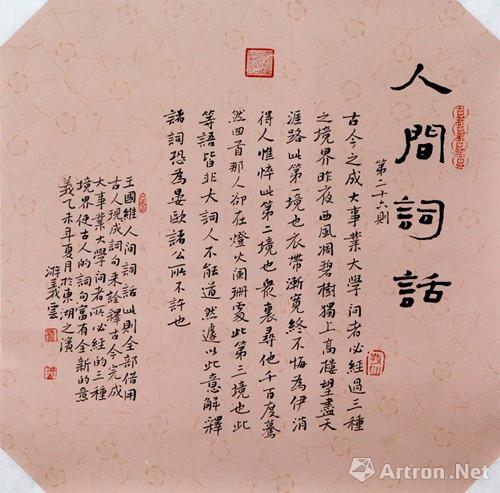 人間詞話
第二十六則
古今之成大事業大学問者必經過三種
之境界昨夜西風凋碧樹獨上高樓望盡天
涯路此第一境也衣帶漸寬終不悔為伊消
得人憔悴此第二境也衆裏尋他千百度驀
然回首那人卻在燈火闌珊處此第三境也此
等語皆非大詞人不能道然遽以此意解釋
諸詞恐為晏歐諸公所不許也
王國維人间詞話此則全部借用
古人現成詞句来詮釋古今完成
大事業大学问者所必經的三種
境界使古人的詞句富有全新的意
義乙未年夏月於東湖之濱
游義雲
雅昌艺术网
Artron.Net